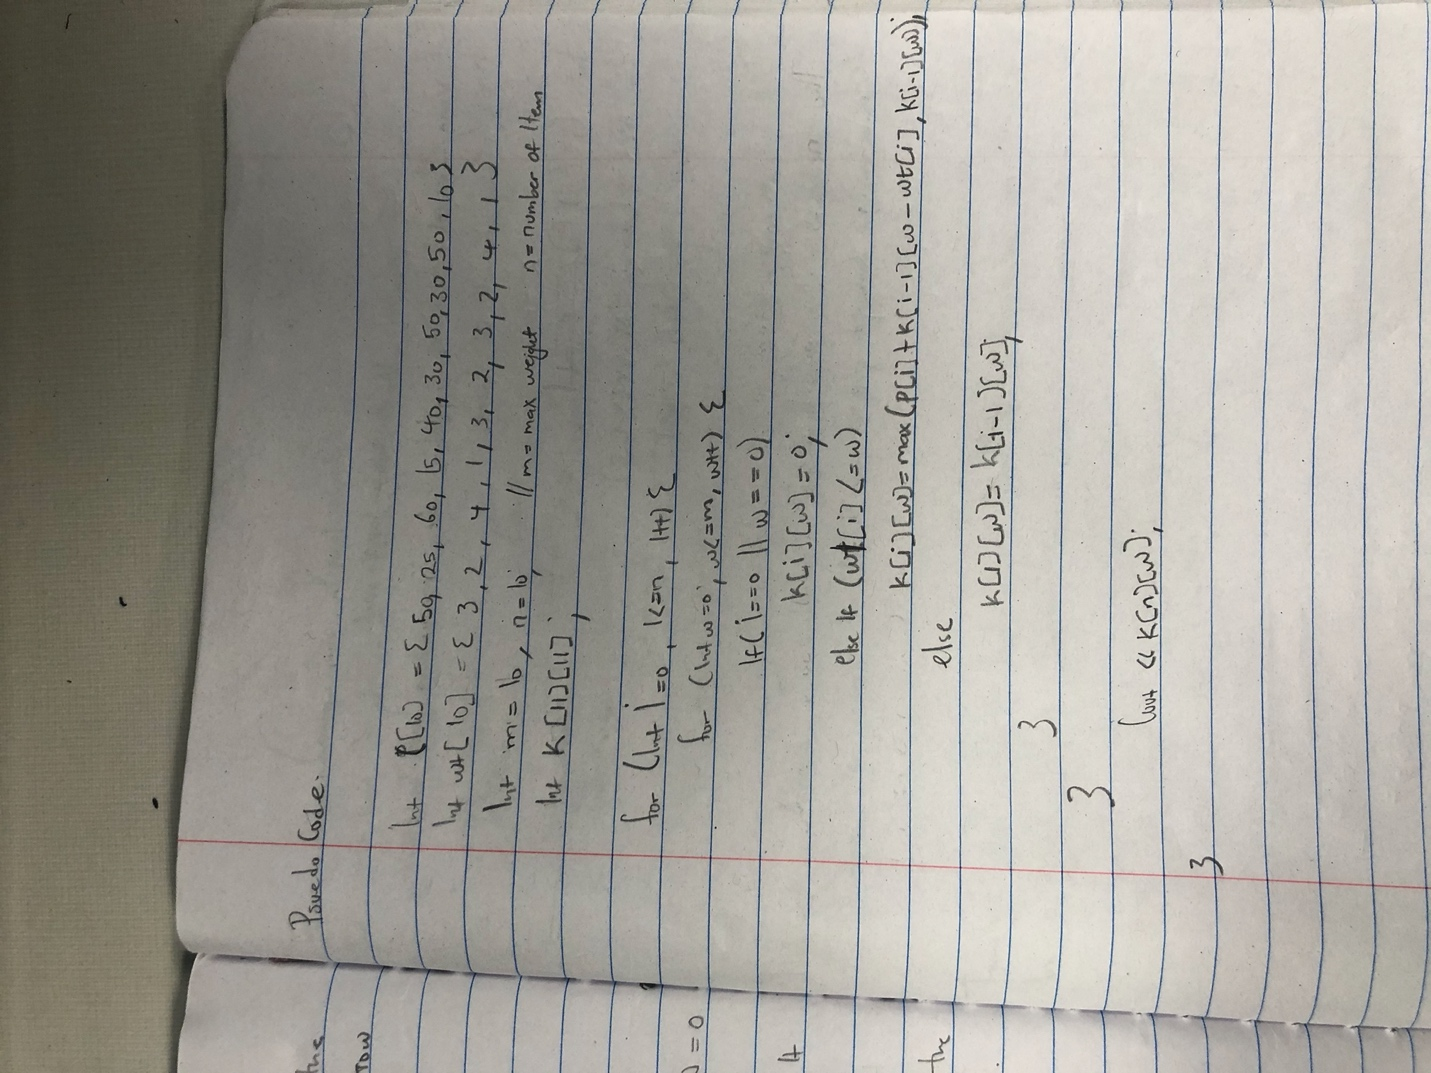 Psuedo Code.
Int P[10] = { 50, 25, 60, 15, 40, 30, 50, 30, 50, 10 }
Int wt[10] = { 3, 2, 4, 1, 3, 2, 3, 2, 4, 1 }
Int m = 10, n = 10; // m = max weight n = number of Item
Int K[11][11];
for (Int i=0, i<=n, i++) {
for (Int w=0; w<=m, w++) {
If (i==0 || w==0)
K[i][w] = 0;
else If (wt[i] <= w)
K[i][w] = max (P[i] + K[i-1][w-wt[i], K[i-1][w]);
else
K[i][w] = K[i-1][w];
}
}
Cout << K[n][w];
}
the
row
= 0
It
the